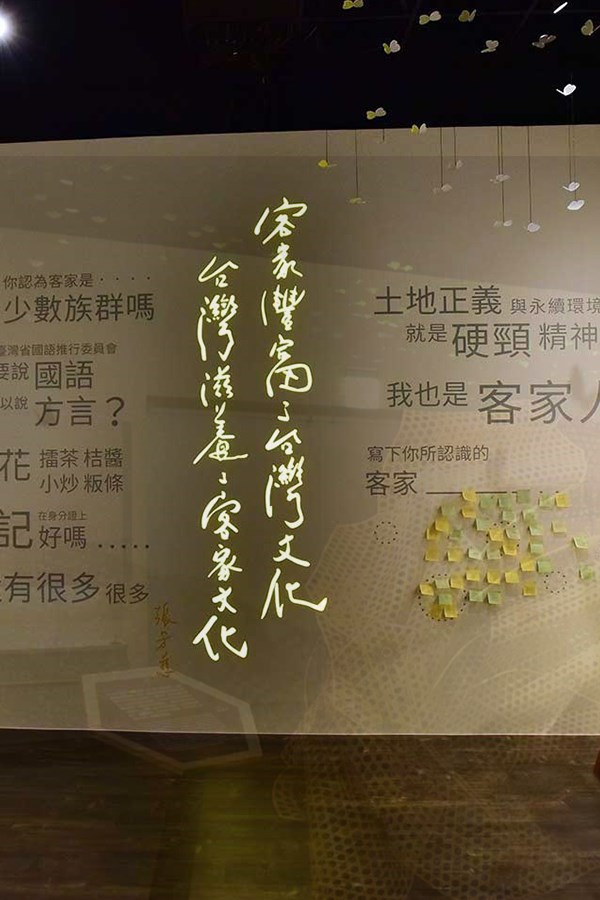 客家豐富了台灣文化
台灣滋養了客家文化
張芳慈
你認為客家是‧‧‧‧‧
少數族群嗎
臺灣省國語推行委員會
要說 國語
以說 方言？
花 擂茶 桔醬
小炒 粄條
在身分證上
記 好嗎 ......
有很多 很多
土地正義 與永續環境
就是 硬頸 精神
我也是 客家人
寫下你所認識的
客家 ________